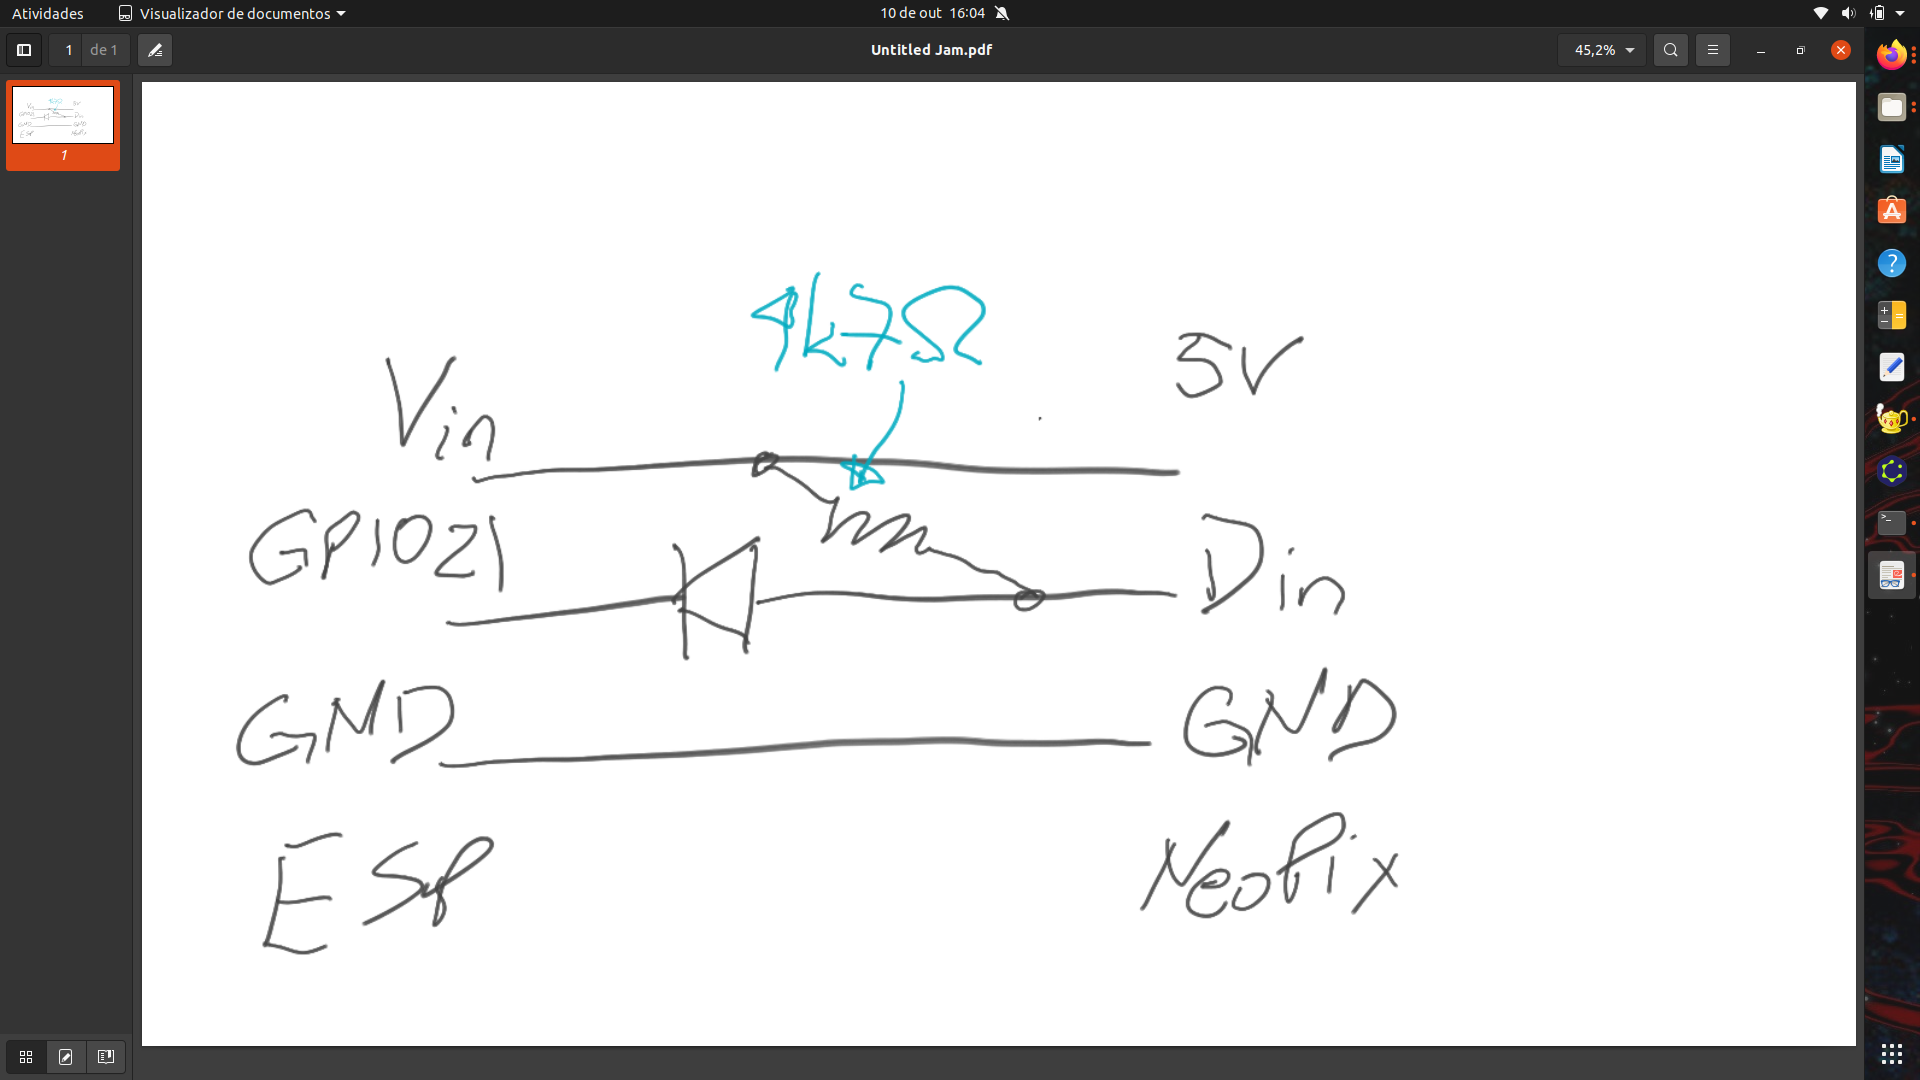 Atividades Visualizador de documentos 10 de out 16:04
1 de 1 Untitled Jam.pdf 45,2%
1
4k7Ω
Vin 5V
GPIO21 Din
GND GND
ESP NeoPix